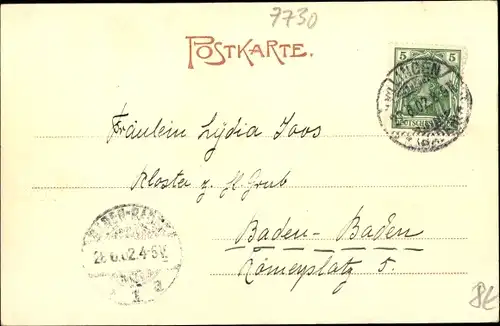 7730
POSTKARTE.
5 5
Fräulein Lydia Joos
Kloster z. hl. Grab
Baden-Baden
Römerplatz 5.
BADEN-BADEN
26.6.02.4-5N.
1 a